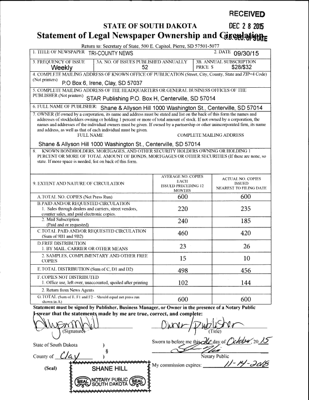 RECEIVED
DEC 28 2015
STATE OF SOUTH DAKOTA
Statement of Legal Newspaper Ownership and Circulation
Return to: Secretary of State, 500 E. Capitol, Pierre, SD 57501-5077
1. TITLE OF NEWSPAPER TRI-COUNTY NEWS
2. DATE 09/30/15
3. FREQUENCY OF ISSUE
Weekly
3A. NO. OF ISSUES PUBLISHED ANNUALLY
52
3B. ANNUAL SUBSCRIPTION
PRICE $ $28/$32
4. COMPLETE MAILING ADDRESS OF KNOWN OFFICE OF PUBLICATION (Street, City, County, State and ZIP+4 Code)
(Not printers)
P O Box 6, Irene, Clay, SD 57037
5. COMPLETE MAILING ADDRESS OF THE HEADQUARTERS OR GENERAL BUSINESS OFFICES OF THE
PUBLISHER (Not printer)
STAR Publishing P.O. Box H, Centerville, SD 57014
6. FULL NAME OF PUBLISHER: Shane & Allyson Hill 1000 Washington St., Centerville, SD 57014
7. OWNER (If owned by a corporation, its name and address must be stated and list on the back of this form the names and
addresses of stockholders owning or holding 1 percent or more of total amount of stock. If not owned by a corporation, the
names and addresses of the individual owners must be given. If owned by a partnership or other unincorporated firm, its name
and address, as well as that of each individual must be given.
FULL NAME COMPLETE MAILING ADDRESS
Shane & Allyson Hill 1000 Washington St., Centerville, SD 57014
8. KNOWN BONDHOLDERS, MORTGAGES, AND OTHER SECURITY HOLDERS OWNING OR HOLDING 1
PERCENT OR MORE OF TOTAL AMOUNT OF BONDS, MORTGAGES OR OTHER SECURITIES (If there are none, so
state. If more space is needed, list on back of this form.
9. EXTENT AND NATURE OF CIRCULATION
AVERAGE NO. COPIES
EACH
ISSUED PRECEDING 12
MONTHS
ACTUAL NO. COPIES
ISSUED
NEAREST TO FILING DATE
A. TOTAL NO. COPIES (Net Press Run) 600 600
B. PAID AND/OR REQUESTED CIRCULATION
1. Sales through dealers and carriers, street vendors,
counter sales, and paid electronic copies.
220 235
2. Mail Subscription
(Paid and or requested)
240 185
C. TOTAL PAID AND/OR REQUESTED CIRCULATION
(Sum of 9B1 and 9B2)
460 420
D. FREE DISTRIBUTION
1. BY MAIL, CARRIER OR OTHER MEANS
23 26
2. SAMPLES, COMPLIMENTARY AND OTHER FREE
COPIES
15 10
E. TOTAL DISTRIBUTION (Sum of C, D1 and D2) 498 456
F. COPIES NOT DISTRIBUTED
1. Office use, left over, unaccounted, spoiled after printing
102 144
2. Return from News Agents
G. TOTAL (Sum of E, F1 and F2 - Should equal net press run
shown in A)
600 600
Statement must be signed by Publisher, Business Manager, or Owner in the presence of a Notary Public
I swear that the statements made by me are true, correct, and complete:
Owner/publisher
(Signature) (Title)
State of South Dakota )
County of Clay ) §
Sworn to before me this day of October 20 15
Notary Public
(Seal)
SHANE HILL
SEAL NOTARY PUBLIC SEAL
SOUTH DAKOTA
My commission expires: 11-14-2018